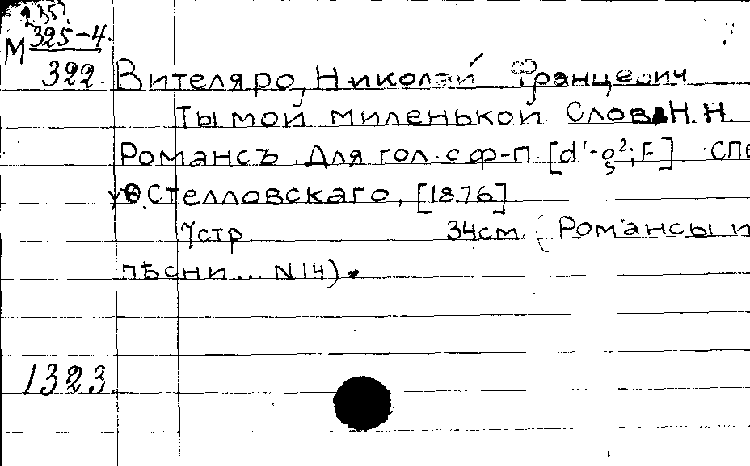 М 325-4
322. Вителяро, Николай Францевич
Ты мой миленькой Слова Н. Н.
Романсъ Для гол. с ф-п. [d¹-g²; F] СПб
Ѳ. Стелловскаго, [1876]
7 стр 34см. (Романсы и
пѣсни... N 14).
1323.